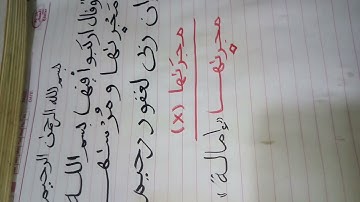 بسم الله الرحمن الرحيم
وقال اركبوا فيها بسم الله
مَجْرٜىٰهَا ومُرْسٰىهَا
ان ربى لغفور رحيم
مجرَىٰهَا (x)
مجرٜىٰهَا "إمالة"